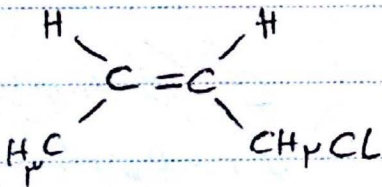 H H
C = C
H۳C CH۲CL